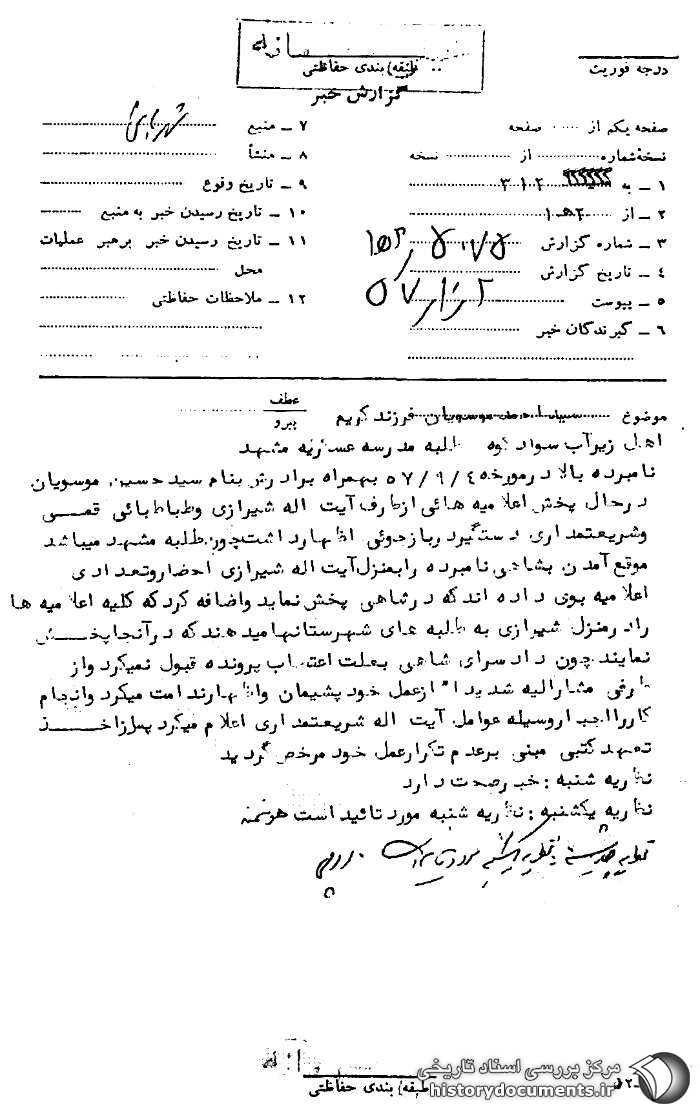 طبقه بندی حفاظتی
گزارش خبر
درجه فوریت
صفحه یکم از ..... صفحه
نسخه شماره ........ از ........ نسخه
۱ ـ به ۳۱۲
۲ ـ از ۲ هـ ۱
۳ ـ شماره گزارش
۴ ـ تاریخ گزارش
۵ ـ پیوست
۶ ـ گیرندگان خبر
۷ ـ منبع
۸ ـ منشأ
۹ ـ تاریخ وقوع
۱۰ ـ تاریخ رسیدن خبر به منبع
۱۱ ـ تاریخ رسیدن خبر برهبر عملیات
محل
۱۲ ـ ملاحظات حفاظتی
موضوع سید احمد موسویان فرزند کریم
عطف
پیرو
اهل زیرآب سواد کوه طلبه مدرسه عسگریه مشهد
نامبرده بالا در مورخه ۵۷/۹/۴ بهمراه برادرش بنام سید حسین موسویان
در حال پخش اعلامیه هائی از طرف آیت اله شیرازی وطباطبائی قمی
وشریعتمداری دستگیر دربازجوئی اظهار داشت چون طلبه مشهد میباشد
موقع آمدن بشاهی نامبرده را بمنزل آیت اله شیرازی احضار وتعدادی
اعلامیه بوی داده اند که در شاهی پخش نماید واضافه کرد که کلیه اعلامیه ها
را در منزل شیرازی به طلبه های شهرستانها میدهند که در آنجا پخش
نمایند چون دادسرای شاهی بعلت اعتصاب پرونده قبول نمیکرد واز
طرفی مشارالیه شدیدا از عمل خود پشیمان واظهار ندامت میکرد وانجام
کار را اجبار وسیله عوامل آیت اله شریعتمداری اعلام میکرد پس از اخذ
تعهد کتبی مبنی بر عدم تکرار عمل خود مرخص گردید
نظریه شنبه : خبر صحت دارد
نظریه یکشنبه : نظریه شنبه مورد تائید است هوشمند
مرکز بررسی اسناد تاریخی
historydocuments.ir
طبقه بندی حفاظتی